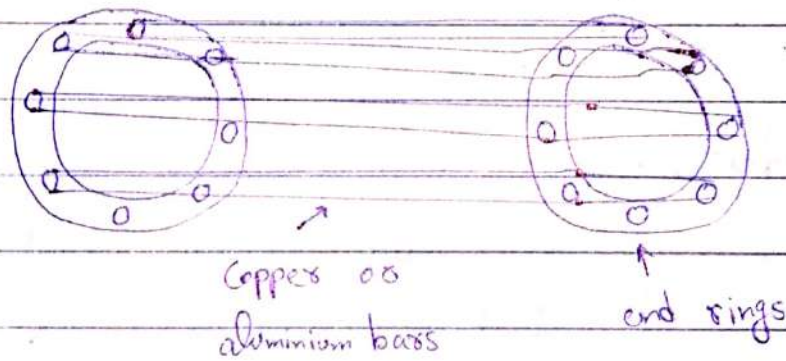 Copper or
aluminium bars
end rings